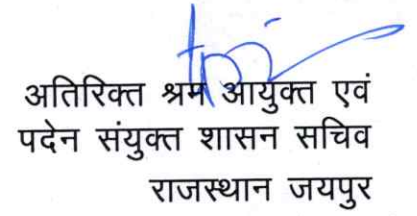 अतिरिक्त श्रम आयुक्त एवं
पदेन संयुक्त शासन सचिव
राजस्थान जयपुर